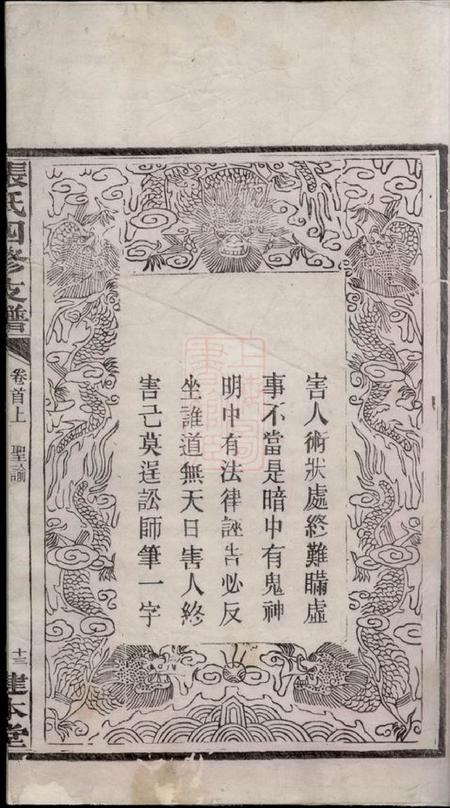 害人術狀處終難瞞虛
事不當是暗中有鬼神
明中有法律誣告必反
坐誰道無天日害人終
害己莫逞訟師筆一字
張氏四修支譜
卷首上
聖諭
十三
建本堂